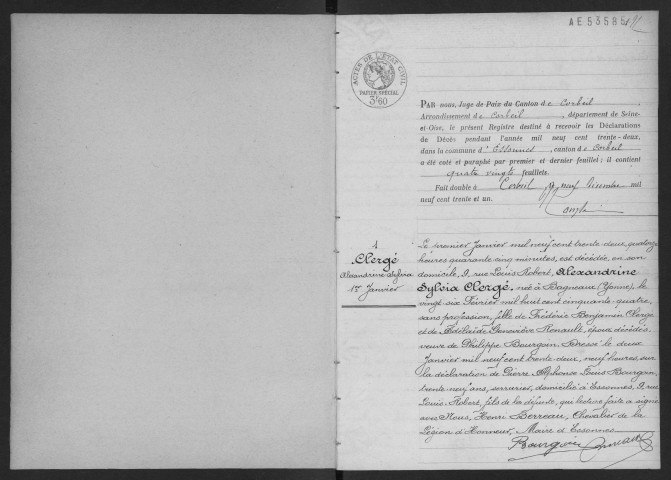 AE 53585
ACTES DE L'ÉTAT CIVIL
PAPIER SPÉCIAL
3f60
PAR nous, Juge de Paix du Canton de Corbeil
Arrondissement de Corbeil, département de Seine-
et-Oise, le présent Registre destiné à recevoir les Déclarations
de Décès pendant l'année mil neuf cent trente-deux,
dans la commune d'Essonnes, canton de Corbeil
a été coté et paraphé par premier et dernier feuillet; il contient
quatre vingts feuillets.
Fait double à Corbeil, neuf Décembre mil
neuf cent trente et un.
1
Clergé
Alexandrine Sylvia
1er Janvier
Le premier Janvier mil neuf cent trente deux, quatorze
heures quarante cinq minutes, est décédée en son
domicile, 9, rue Louis Robert, Alexandrine
Sylvia Clergé, née à Bagneaux (Yonne), le
vingt six Février mil huit cent cinquante quatre,
sans profession, fille de Frédéric Benjamin Clergé
et de Adélaïde Geneviève Renault, époux décédés,
veuve de Philippe Bourgoin. Dressé le deux
Janvier mil neuf cent trente deux, neuf heures, sur
la déclaration de Pierre Alphonse Louis Bourgoin,
trente neuf ans, serrurier, domicilié à Essonnes, 9, rue
Louis Robert, fils de la défunte, qui lecture faite a signé
avec Nous, Henri Berreau, Chevalier de la
Légion d'Honneur, Maire d'Essonnes
Bourgoin